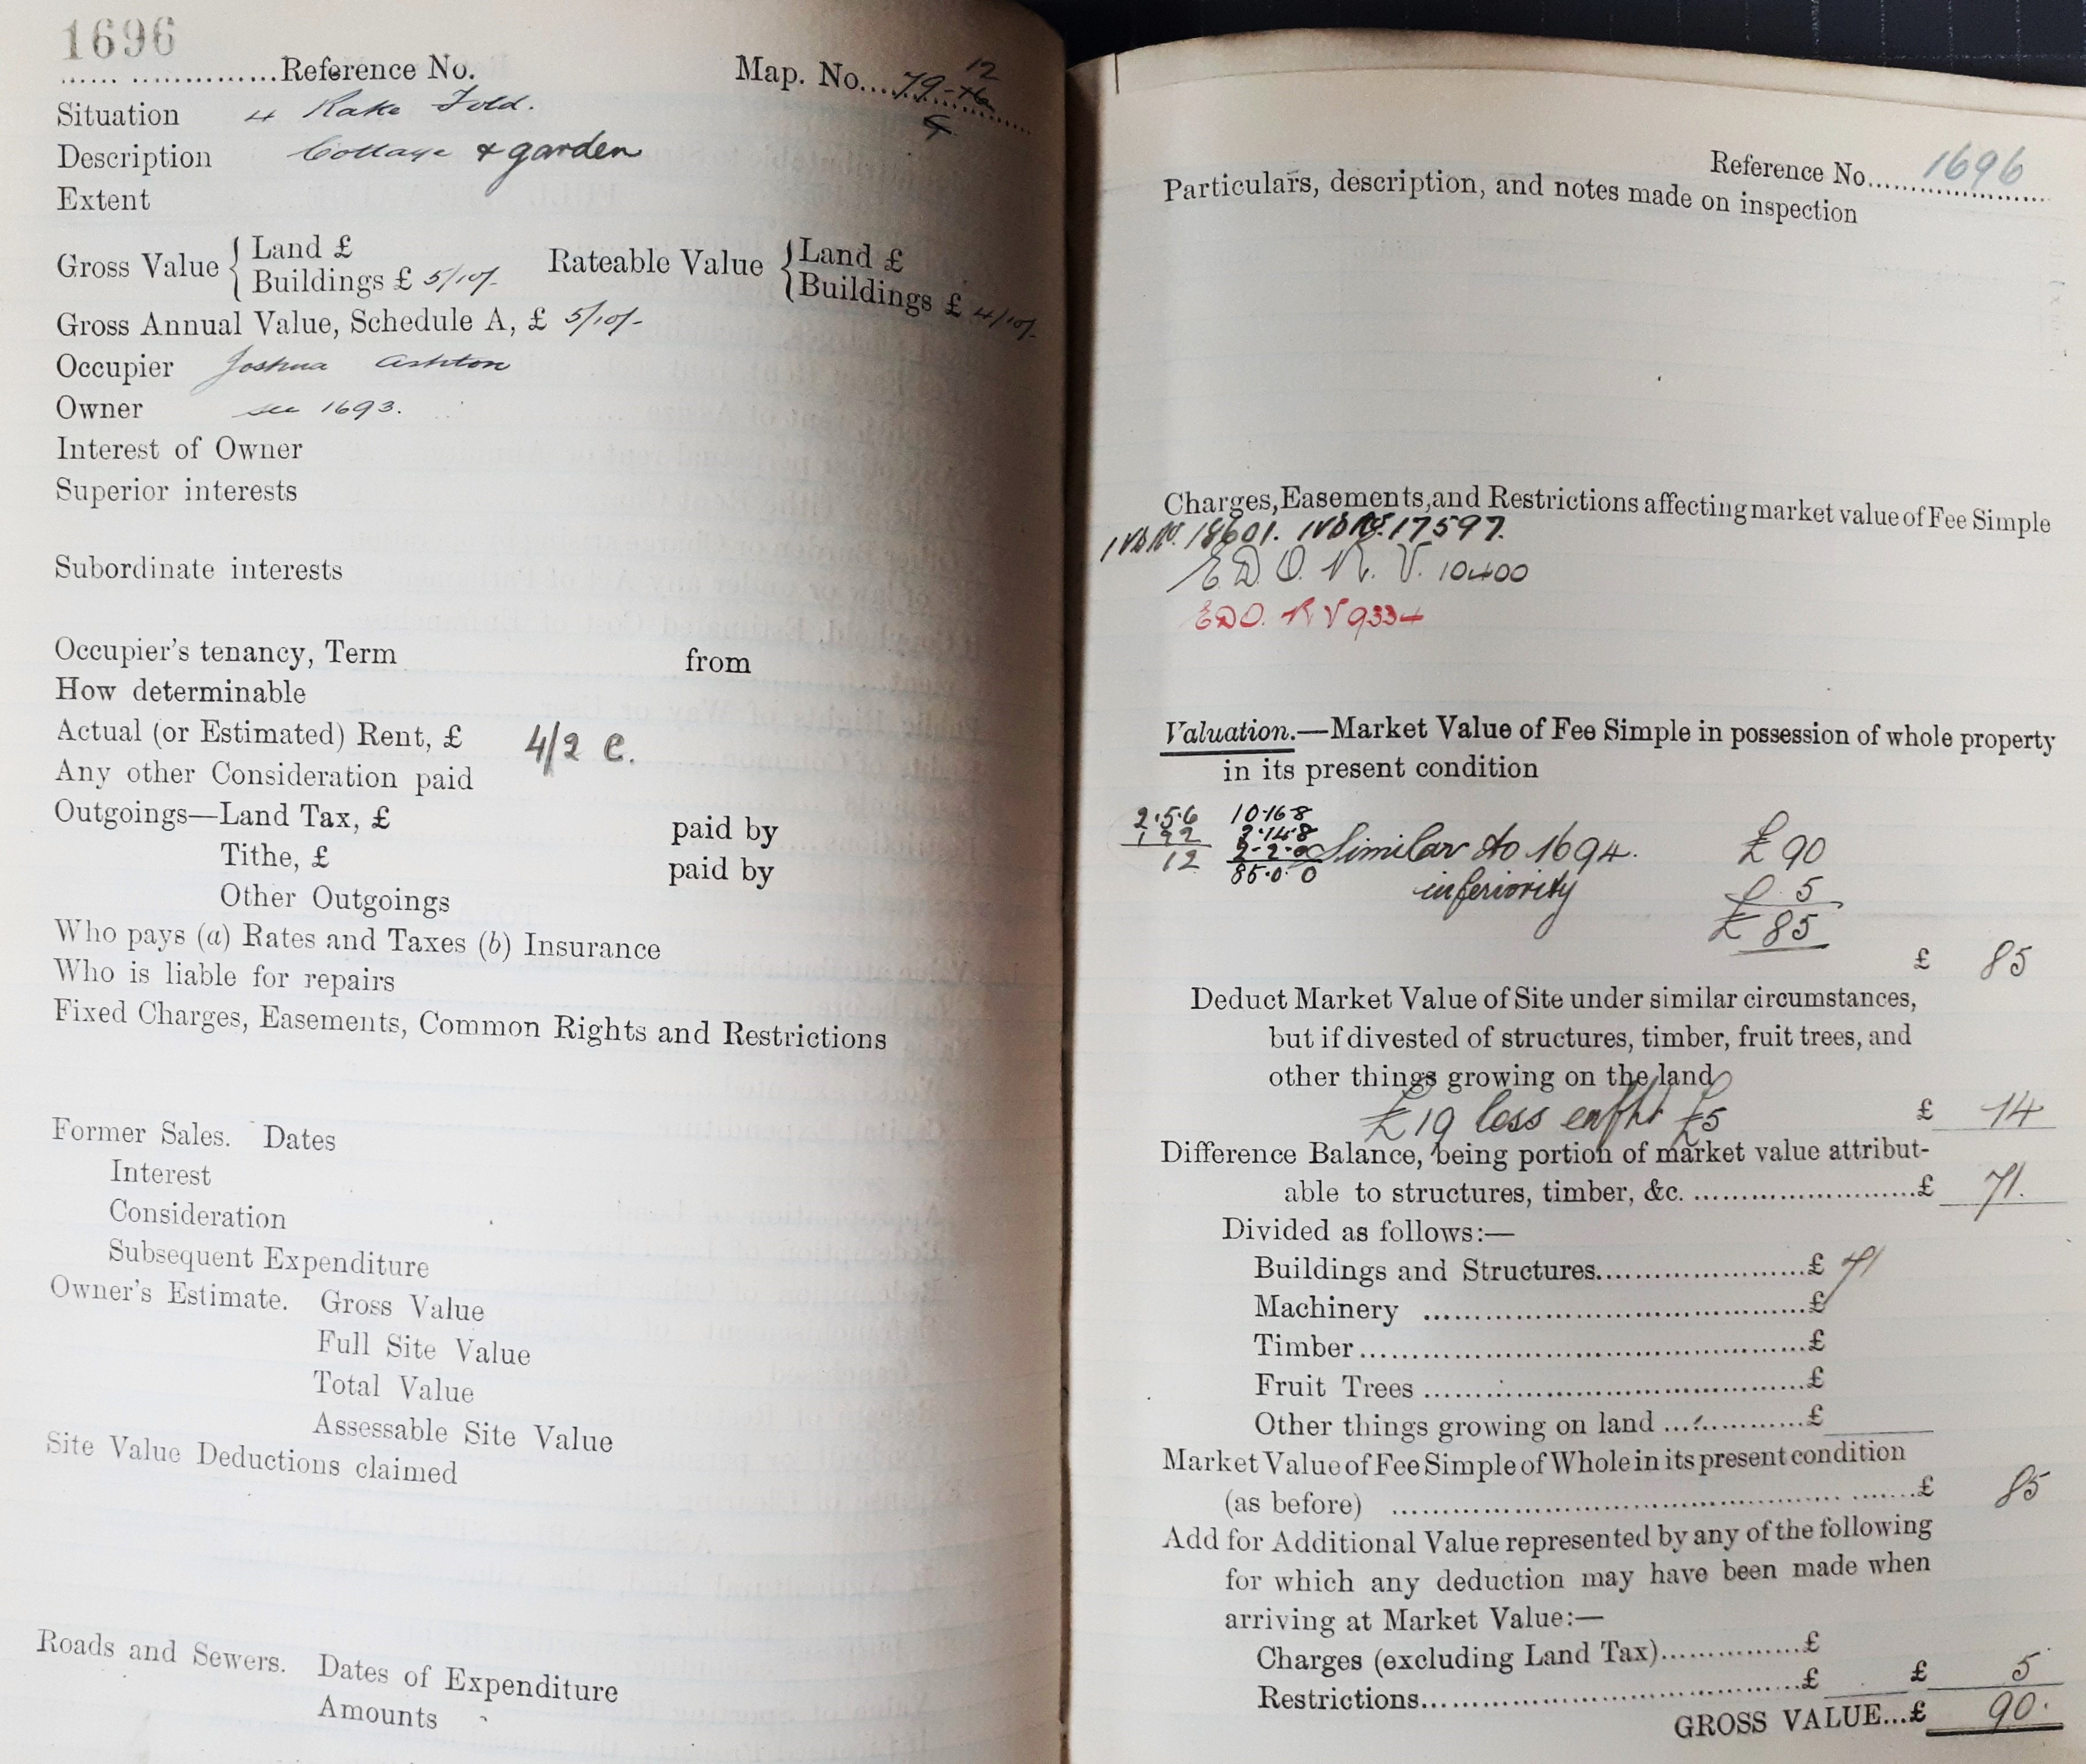 1696
Reference No. Map. No. 79-12
Situation 4 Rake Fold.
Description Cottage & garden
Extent
Gross Value { Land £ Rateable Value { Land £
Buildings £ 5/10/- Buildings £ 4/10/-
Gross Annual Value, Schedule A, £ 5/10/-
Occupier Joshua Ashton
Owner see 1693.
Interest of Owner
Superior interests
Subordinate interests
Occupier's tenancy, Term from
How determinable
Actual (or Estimated) Rent, £ 4/2 C.
Any other Consideration paid
Outgoings—Land Tax, £ paid by
Tithe, £ paid by
Other Outgoings
Who pays (a) Rates and Taxes (b) Insurance
Who is liable for repairs
Fixed Charges, Easements, Common Rights and Restrictions
Former Sales. Dates
Interest
Consideration
Subsequent Expenditure
Owner's Estimate. Gross Value
Full Site Value
Total Value
Assessable Site Value
Site Value Deductions claimed
Roads and Sewers. Dates of Expenditure
Amounts
Reference No. 1696
Particulars, description, and notes made on inspection
Charges, Easements, and Restrictions affecting market value of Fee Simple
IVD No. 18601. IVD No. 17597.
E.D.O. R.V. 10400
EDO. RV 9334
Valuation.—Market Value of Fee Simple in possession of whole property
in its present condition
2.5.6 10.16.8
2.14.8
12 2.2.0 Similar to 1694. £90
85.0.0 inferiority £ 5
£ 85
£ 85
Deduct Market Value of Site under similar circumstances,
but if divested of structures, timber, fruit trees, and
other things growing on the land
£19 less £5 £ 14
Difference Balance, being portion of market value attribut-
able to structures, timber, &c. £ 71.
Divided as follows:—
Buildings and Structures £ 71
Machinery £
Timber £
Fruit Trees £
Other things growing on land £
Market Value of Fee Simple of Whole in its present condition
(as before) £ 85
Add for Additional Value represented by any of the following
for which any deduction may have been made when
arriving at Market Value:—
Charges (excluding Land Tax) £
Restrictions £ £ 5
GROSS VALUE...£ 90.